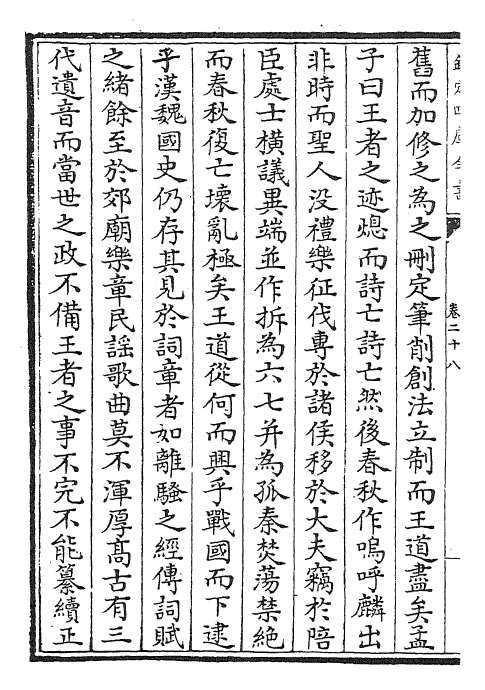 欽定四庫全書
卷二十八
舊而加修之為之刪定筆削創法立制而王道盡矣孟
子曰王者之迹熄而詩亡詩亡然後春秋作嗚呼麟出
非時而聖人没禮樂征伐專於諸侯移於大夫竊於陪
臣處士橫議異端並作拆為六七并為孤秦焚蕩禁絶
而春秋復亡壞亂極矣王道從何而興乎戰國而下逮
乎漢魏國史仍存其見於詞章者如離騷之經傳詞賦
之緒餘至於郊廟樂章民謡歌曲莫不渾厚髙古有三
代遺音而當世之政不備王者之事不完不能纂續正